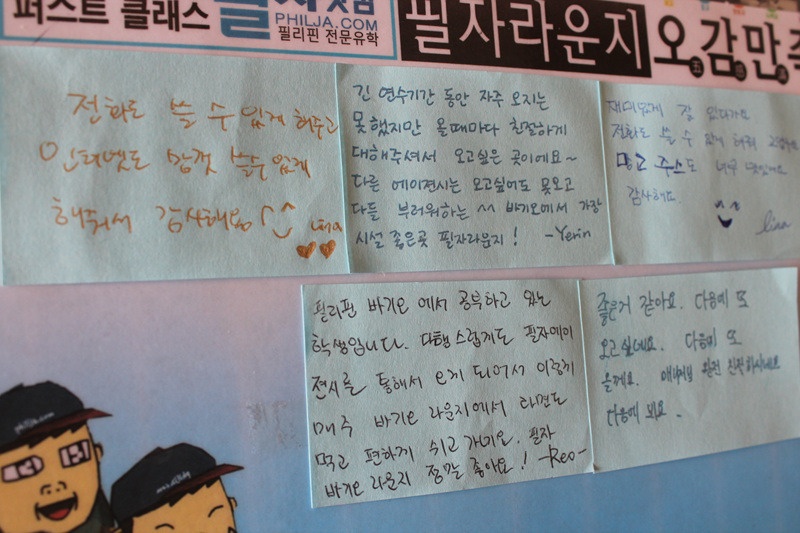 퍼스트 클래스
PHILJA.COM
필리핀 전문유학
필자라운지 오감만족
전화도 쓸 수 있게 해주고
인터넷도 맘껏 쓸 수 있게
해줘서 감사해용
Lina
긴 연수기간 동안 자주 오지는
못했지만 올때마다 친절하게
대해주셔서 오고싶은 곳이에요~
다른 에이젼시는 오고싶어도 못오고
다들 부러워하는 ^^ 바기오에서 가장
시설 좋은곳 필자라운지! -Yerin
재미있게 잘 있다가요
전화도 쓸 수 있게 해줘
망고 주스도 너무 맛있어요
감사해요
lina
필리핀 바기오 에서 공부하고 있는
학생입니다. 다행스럽게도 필자에이
전시를 통해서 오게 되어서 이렇게
매주 바기오 라운지에서 라면도
먹고 편하게 쉬고 가네요. 필자
바기오 라운지 정말 좋아요! -Reo-
좋은거 같아요. 다음에 또
오고싶네요. 다음에 또
올게요. 매니저님 완전 친절하시네요
다음에 봐요.
philja.com